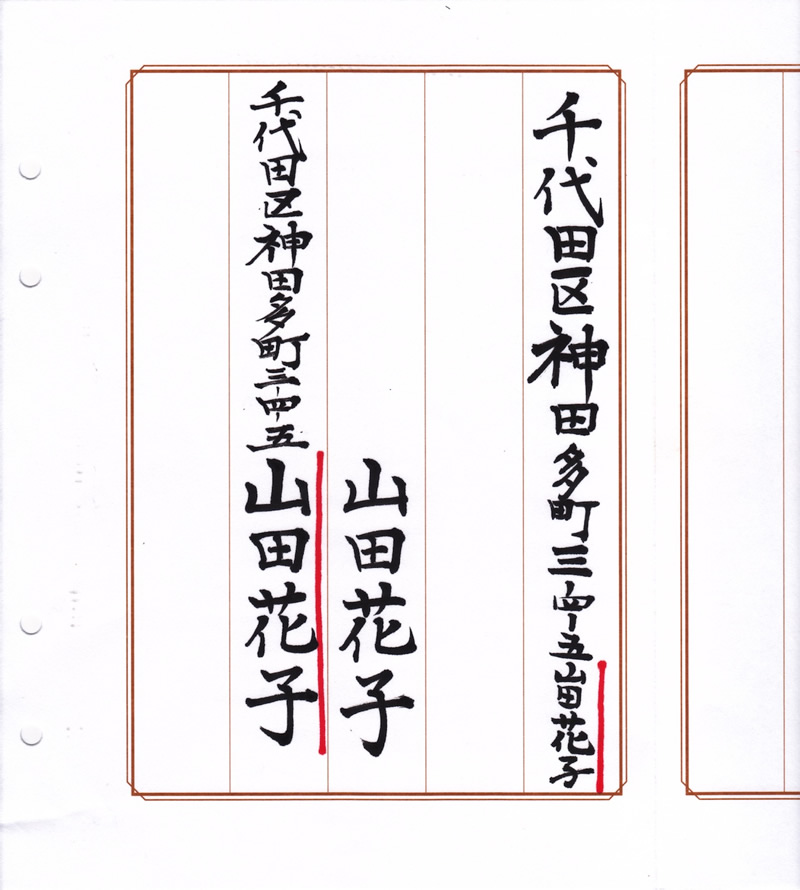 千代田区神田多町三-四-五山田花子
山田花子
千代田区神田多町三-四-五山田花子